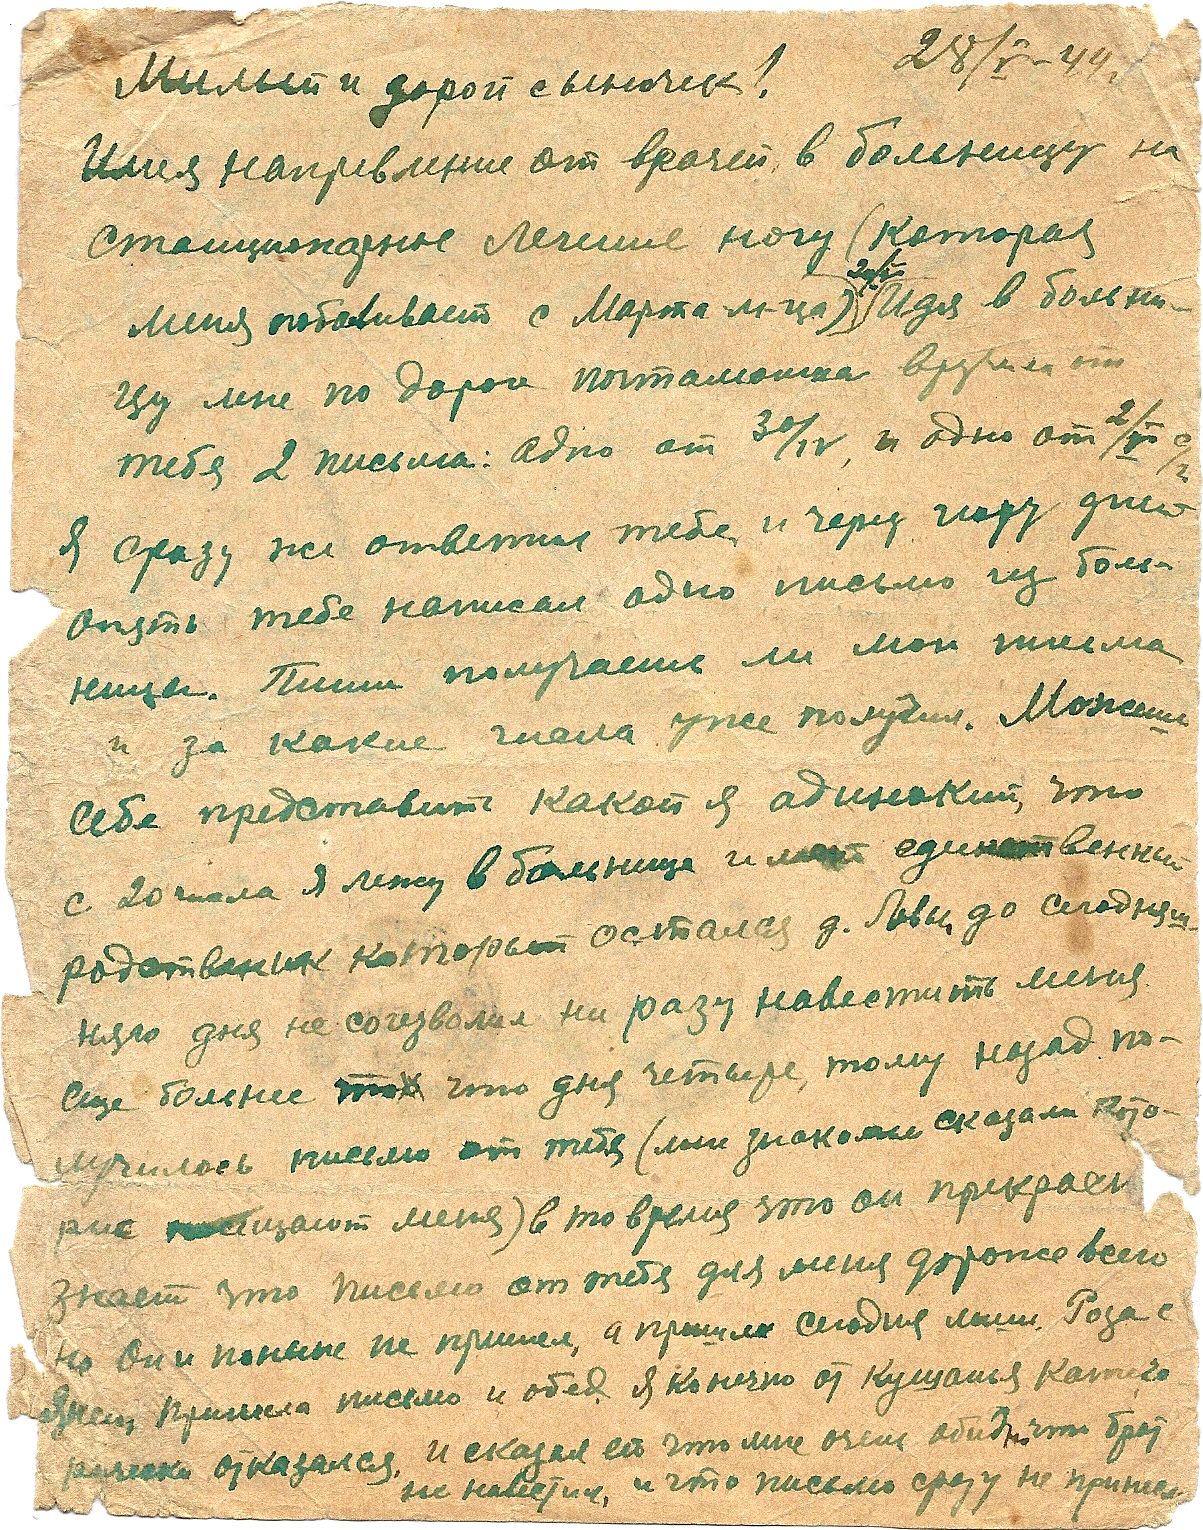 28/V-44.
Милый и дорой сыночек!
Имея напревление от врачей, в больницу на
стоиционарные лечение ногу (которая
меня побаливает с Марта м-ца) Идя в больни-
цу мне по дороги почтальонша вручила от
тебя 2 письма: одно от 30/IV, и одно от 2/V с/г.
Я сразу же ответил тебе, и через пару дней
опять тебе написал одно письмо из боль-
ницы. Пиши получаешь ли мои письма
и за какие числа уже получил. Можеш
себе представить какой я одинокий, что
с 20 числа я лежу в больнице и единственный
родственик который остался д. Лова, до сегодняш-
няго дня не соизволил ни разу навестить меня.
еще больнее что дня четыре, тому назад по-
лучилось письмо от тебя (мне знакомые сказали кото-
рые посищают меня) в то время что он прикрасн
знает что письмо от тебя для меня дороже всего
но он и поныне не пришел, а пришла сегодня Роза с
принесла письмо и обед. Я конечно от кушанья катиго-
рически отказался, и сказал ей что мне очень обидно что брат
не навестил, и что письмо сразу не принесли